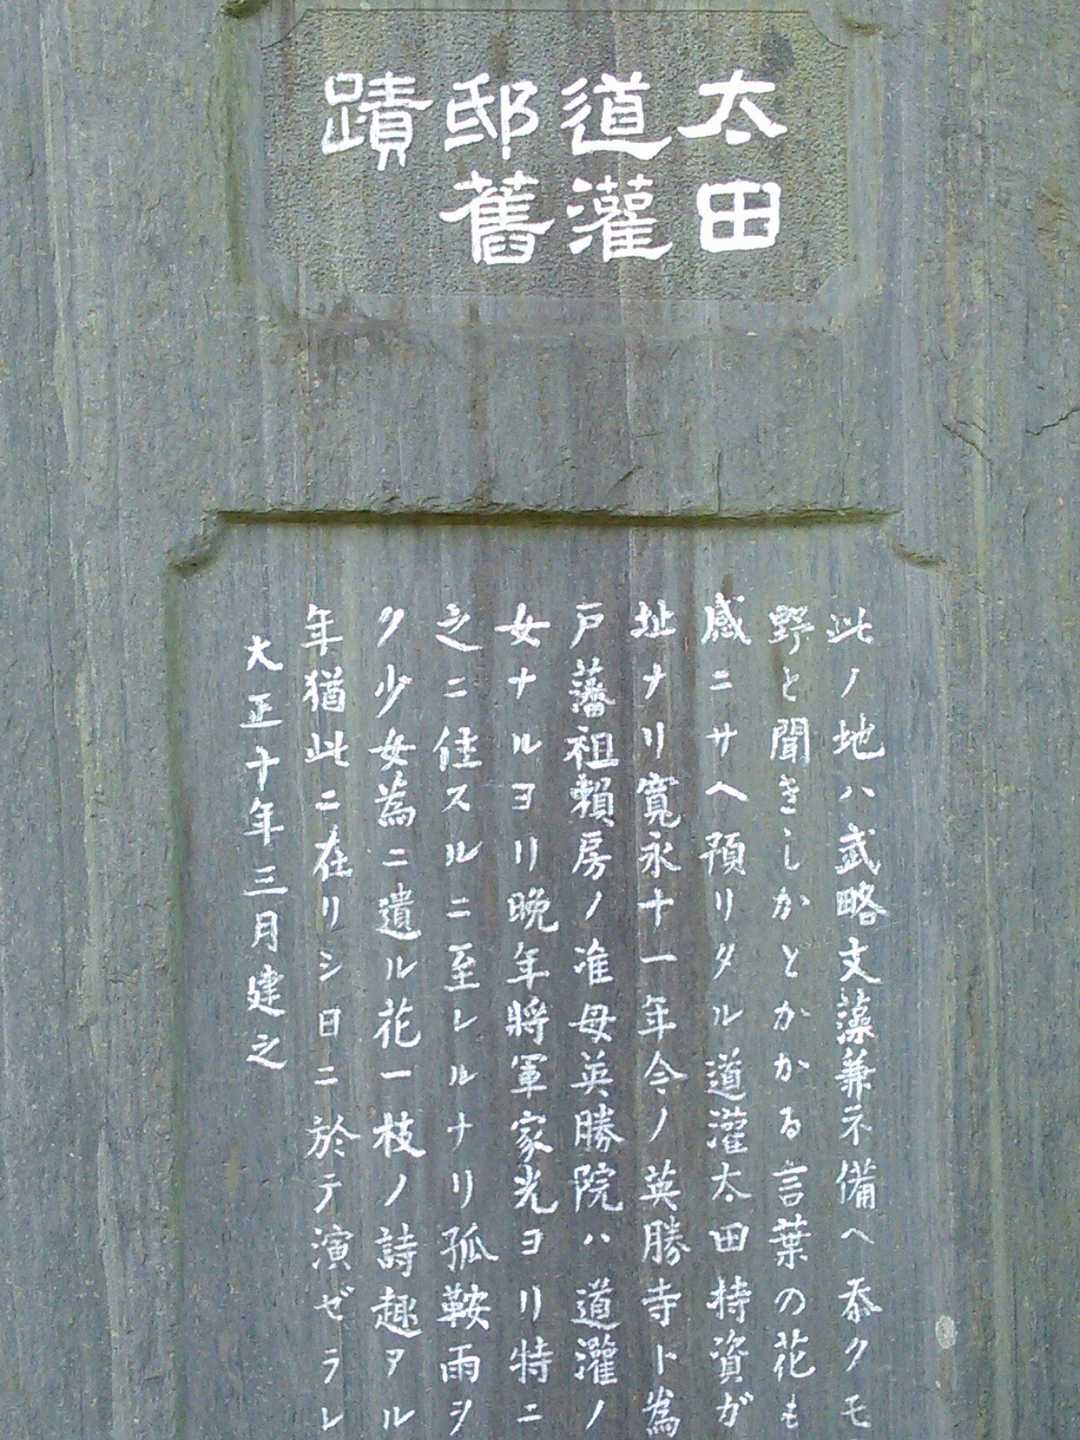 太田
道灌
邸舊
蹟
此ノ地ハ武略文藻兼ネ備ヘ忝クモ
野と聞きしかどかかる言葉の花も
感ニサヘ預リタル道灌太田持資ガ
址ナリ寛永十一年今ノ英勝寺ト為
戸藩祖頼房ノ准母英勝院ハ道灌ノ
女ナルヨリ晩年將軍家光ヨリ特ニ
之ニ住スルニ至レルナリ孤鞍雨ヲ
ク少女為ニ遺ル花一枝ノ詩趣アル
年猶此ニ在リシ日ニ於テ演ゼラレ
大正十年三月建之